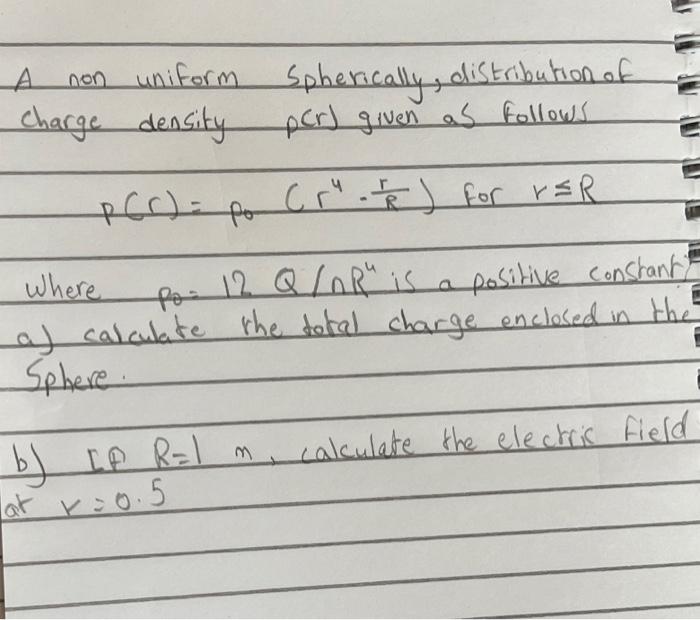 A non uniform spherically, distribution of
charge density p(r) given as follows
p(r) = p₀ (r⁴ - r/R) for r ≤ R
where p₀ = 12 Q/πR⁴ is a positive constant
a) calculate the total charge enclosed in the
Sphere.
b) If R=1 m, calculate the electric field
at r=0.5